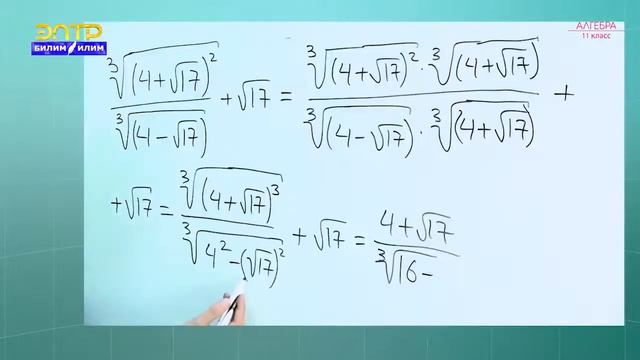 ЭЛТР
БИЛИМ ИЛИМ
АЛГЕБРА
11 класс
∛(4+√17)² / ∛(4-√17) + √17 = ∛(4+√17)² · ∛(4+√17) / ∛(4-√17) · ∛(4+√17) +
+√17 = ∛(4+√17)³ / ∛4²-(√17)² + √17 = 4+√17 / ∛16-